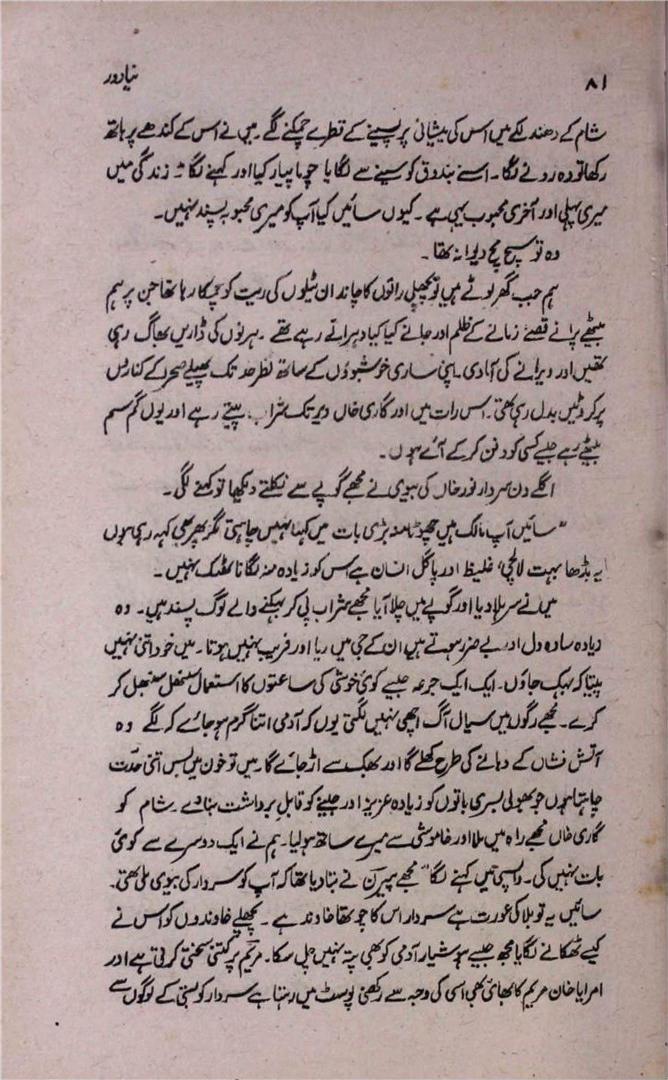 ۸۱ نیا دور
شام کے دھندلکے میں اس کی پیشانی پر پسینے کے قطرے چمکنے لگے۔ میں نے اس کے کندھے پر ہاتھ
رکھا تو وہ رونے لگا۔ اسنے بندوق کو سینے سے لگایا چوما پیار کیا اور کہنے لگا۔ زندگی میں
میری پہلی اور آخری محبوب یہی ہے۔ کیوں سائیں کیا آپ کو میری محبوبہ پسند نہیں۔
وہ تو سچ مچ دیوانہ تھا۔
ہم جب گھر لوٹے ہیں تو پچھلی راتوں کا چاند ان ٹیلوں کی ریت کو چمکا رہا تھا جن پر ہم
بیٹھے پرانے قصے زمانے کے ظلم اور جانے کیا کیا دہراتے رہے تھے۔ ہرنوں کی ڈاریں بھاگ رہی
تھیں اور ویرانے کی آبادی۔ اپنی ساری خوشبوؤں کے ساتھ نظر حد تک پھیلے صحرا کے کناروں
پر کروٹیں بدل رہی تھی۔ اس رات میں اور گاری خاں دیر تک شراب پیتے رہے اور یوں گم سم
بیٹھے رہے جیسے کسی کو دفن کر کے آئے ہوں۔
اگلے دن سردار نور خاں کی بیوی نے مجھے گوپے سے نکلتے دیکھا تو کہنے لگی۔
"سائیں آپ مالک ہیں چھوٹا منہ بڑی بات میں کہنا نہیں چاہتی مگر پھر بھی کہہ رہی ہوں
یہ بڈھا بہت لالچی، غلیظ اور پاگل انسان ہے اس کو زیادہ منہ لگانا ٹھیک نہیں۔
میں نے سر ہلا دیا اور گوپے میں چلا آیا مجھے شراب پی کر بہکنے والے لوگ پسند ہیں۔ وہ
زیادہ سادہ دل اور بے ضرر ہوتے ہیں ان کے جی میں ریا اور فریب نہیں ہوتا۔ میں خود اتنی نہیں
پیتا کہ بہک جاؤں۔ ایک ایک جرعہ جیسے کوئی خوشی کی ساعتوں کا استعمال سنبھل سنبھل کر
کرے۔ مجھے رگوں میں سیال آگ اچھی نہیں لگتی یوں کہ آدمی اتنا گرم ہو جائے کہ لگے وہ
آتش فشاں کے دہانے کی طرح کھلے گا اور بھک سے اڑ جائے گا۔ میں تو خون میں بس اتنی حدت
چاہتا ہوں جو بھولی بسری باتوں کو زیادہ عزیز اور جینے کو قابلِ برداشت بنا دے۔ شام کو
گاری خاں مجھے راہ میں ملا اور خاموشی سے میرے ساتھ ہو لیا۔ ہم نے ایک دوسرے سے کوئی
بات نہیں کی۔ واپسی میں کہنے لگا "مجھے پیرن نے بتا دیا تھا کہ آپ کو سردار کی بیوی ملی تھی۔
سائیں یہ تو بلا کی عورت ہے سردار اس کا چوتھا خاوند ہے۔ پچھلے خاوندوں کو اس نے
کیسے ٹھکانے لگایا مجھ جیسے ہوشیار آدمی کو بھی پتہ نہیں چل سکا۔ مریم پر کتنی سختی کرتی ہے اور
امرایا خان مریم کا بھائی بھی اسی کی وجہ سے رکھنی پوسٹ میں رہتا ہے سردار کو بستی کے لوگوں سے